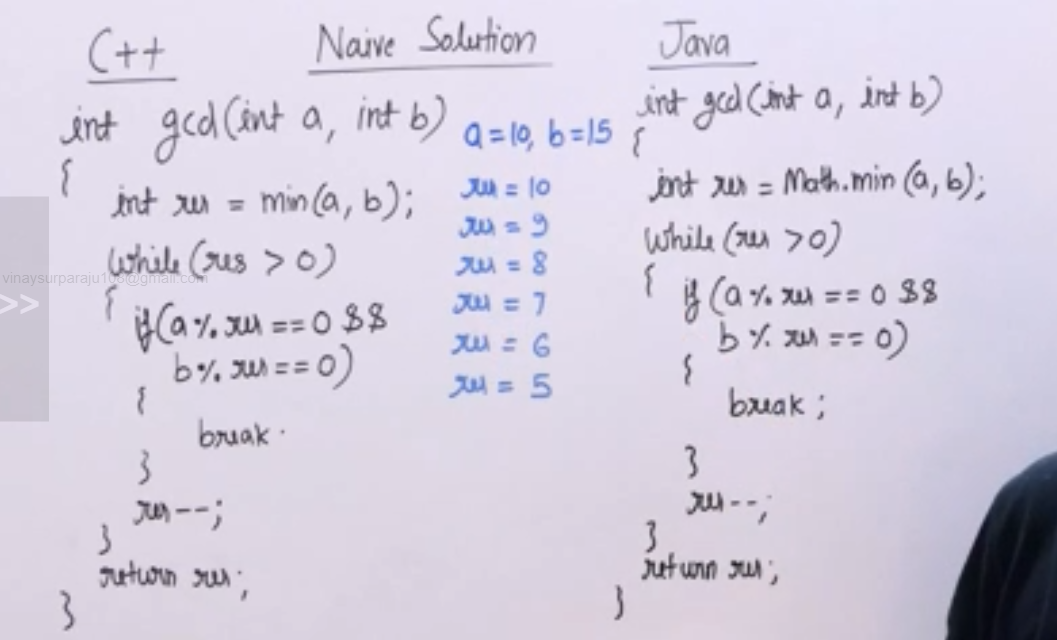 C++
int gcd(int a, int b)
{
int res = min(a, b);
while (res > 0)
{
if(a % res == 0 &&
b % res == 0)
{
break.
}
res--;
}
return res;
}
Naive Solution
a = 10, b = 15
res = 10
res = 9
res = 8
res = 7
res = 6
res = 5
Java
int gcd(int a, int b)
{
int res = Math.min(a, b);
while (res > 0)
{
if (a % res == 0 &&
b % res == 0)
{
break;
}
res--;
}
return res;
}
vinaysurparaju108@gmail.com
>>